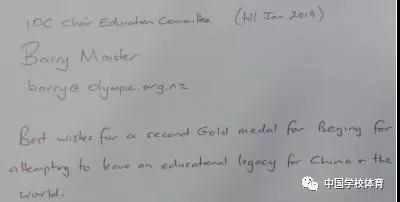 IOC Chair Education Committee (till Jan 2019)
Barry Maister
barry@olympic.org.nz
Best wishes for a second Gold medal for Beijing for
attempting to leave an educational legacy for China & the
world.
中国学校体育